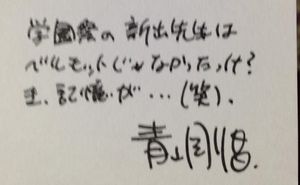 学園祭の新出先生は
ベルモットじゃなかったっけ?
ま、記憶が…(笑)、
青山剛昌.